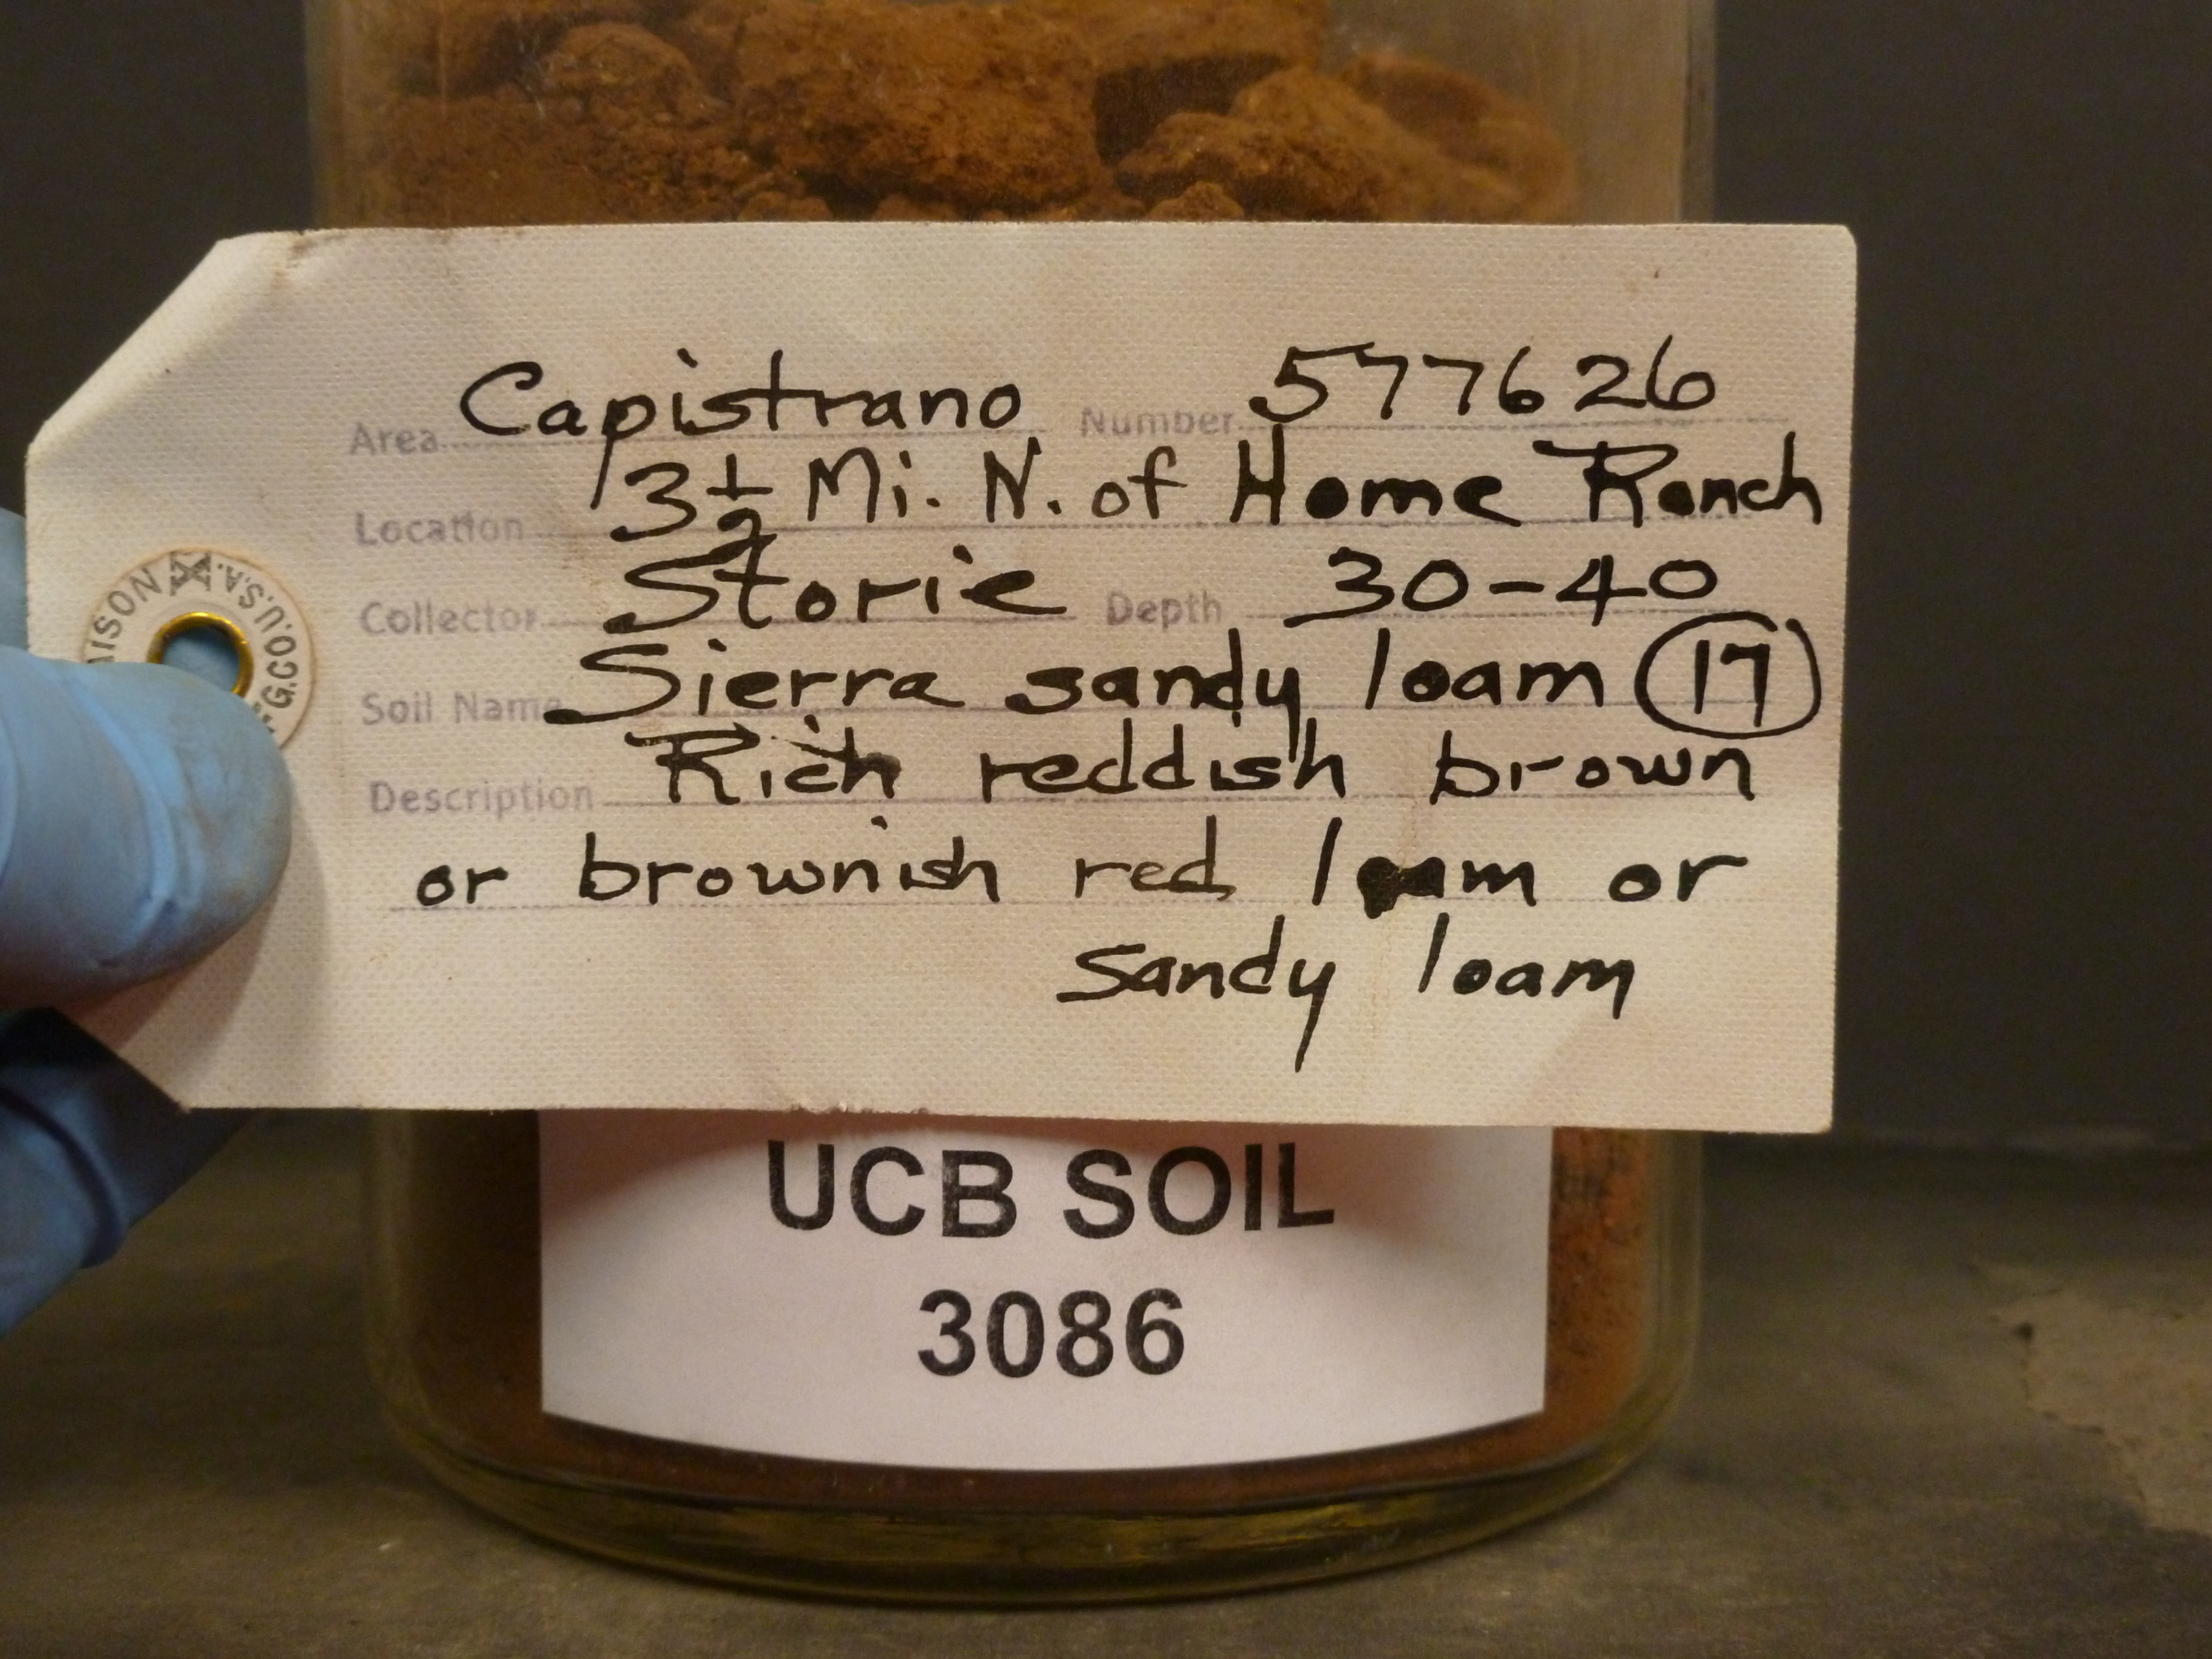 Area Capistrano Number 577626
Location 3 1/2 Mi. N. of Home Ranch
Collector Storie Depth 30-40
Soil Name Sierra sandy loam 17
Description Rich reddish brown
or brownish red loam or
sandy loam
G.CO.U.S.A.
UCB SOIL
3086